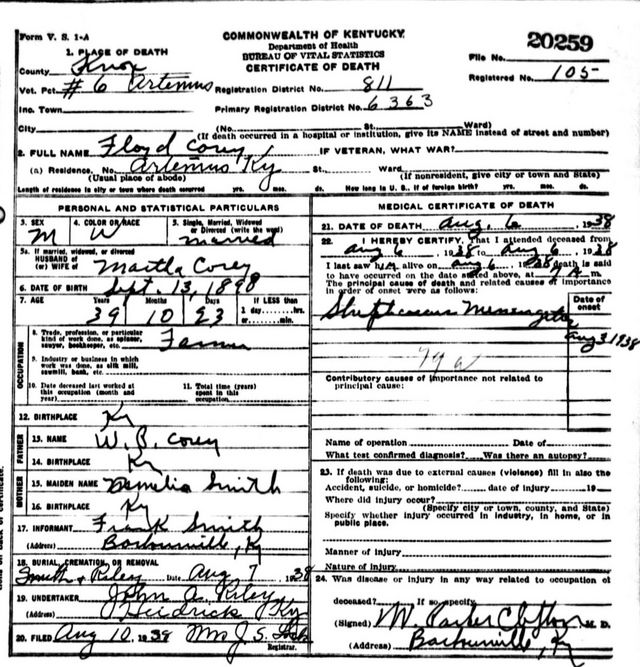 Form V. S. 1-A
COMMONWEALTH OF KENTUCKY
Department of Health
BUREAU OF VITAL STATISTICS
CERTIFICATE OF DEATH
20259
File No.
Registered No. 105
1. PLACE OF DEATH
County Knox
Vot. Pct. #6 Artemus
Registration District No. 811
Inc. Town
Primary Registration District No. 6363
City (No. St. Ward)
(If death occurred in a hospital or institution, give its NAME instead of street and number)
2. FULL NAME Floyd Corey IF VETERAN, WHAT WAR?
(a) Residence. No. Artemus Ky St. Ward
(Usual place of abode) (If nonresident, give city or town and State)
Length of residence in city or town where death occurred yrs. mos. ds. How long in U. S., if of foreign birth? yrs. mos. ds.
PERSONAL AND STATISTICAL PARTICULARS
3. SEX M
4. COLOR OR RACE W
5. Single, Married, Widowed or Divorced (write the word) Married
5a. If married, widowed, or divorced
HUSBAND of
(or) WIFE of Martha Corey
6. DATE OF BIRTH Sept. 13, 1898
7. AGE Years 39 Months 10 Days 23 If LESS than 1 day hrs. or min.
OCCUPATION
8. Trade, profession, or particular kind of work done, as spinner, sawyer, bookkeeper, etc. Farmer
9. Industry or business in which work was done, as silk mill, sawmill, bank, etc.
10. Date deceased last worked at this occupation (month and year)
11. Total time (years) spent in this occupation
12. BIRTHPLACE Ky
FATHER
13. NAME W. B. Corey
14. BIRTHPLACE Ky
MOTHER
15. MAIDEN NAME Smith
16. BIRTHPLACE Ky
17. INFORMANT Frank Smith
(Address) Barbourville, Ky
18. BURIAL, CREMATION, OR REMOVAL
Smith & Riley Date Aug 7 1938
19. UNDERTAKER John A. Riley
(Address) Heidrick Ky
20. FILED Aug 10 1938 Mrs J. S.
Registrar.
MEDICAL CERTIFICATE OF DEATH
21. DATE OF DEATH Aug, 6, 1938
22. I HEREBY CERTIFY, That I attended deceased from
Aug 6, 1938 to Aug 6, 1938
I last saw h alive on Aug 6, 1938 death is said
to have occurred on the date stated above, at A. m.
The principal cause of death and related causes of importance
in order of onset were as follows:
Date of onset
Meningitis
Aug 3 1938
79 a
Contributory causes of importance not related to
principal cause:
Name of operation Date of
What test confirmed diagnosis? Was there an autopsy?
23. If death was due to external causes (violence) fill in also the
following:
Accident, suicide, or homicide? date of injury 19
Where did injury occur?
(Specify city or town, county, and State)
Specify whether injury occurred in industry, in home, or in
public place.
Manner of injury
Nature of injury
24. Was disease or injury in any way related to occupation of
deceased? If so, specify
(Signed) M. Parker Clifton M. D.
(Address) Barbourville, Ky